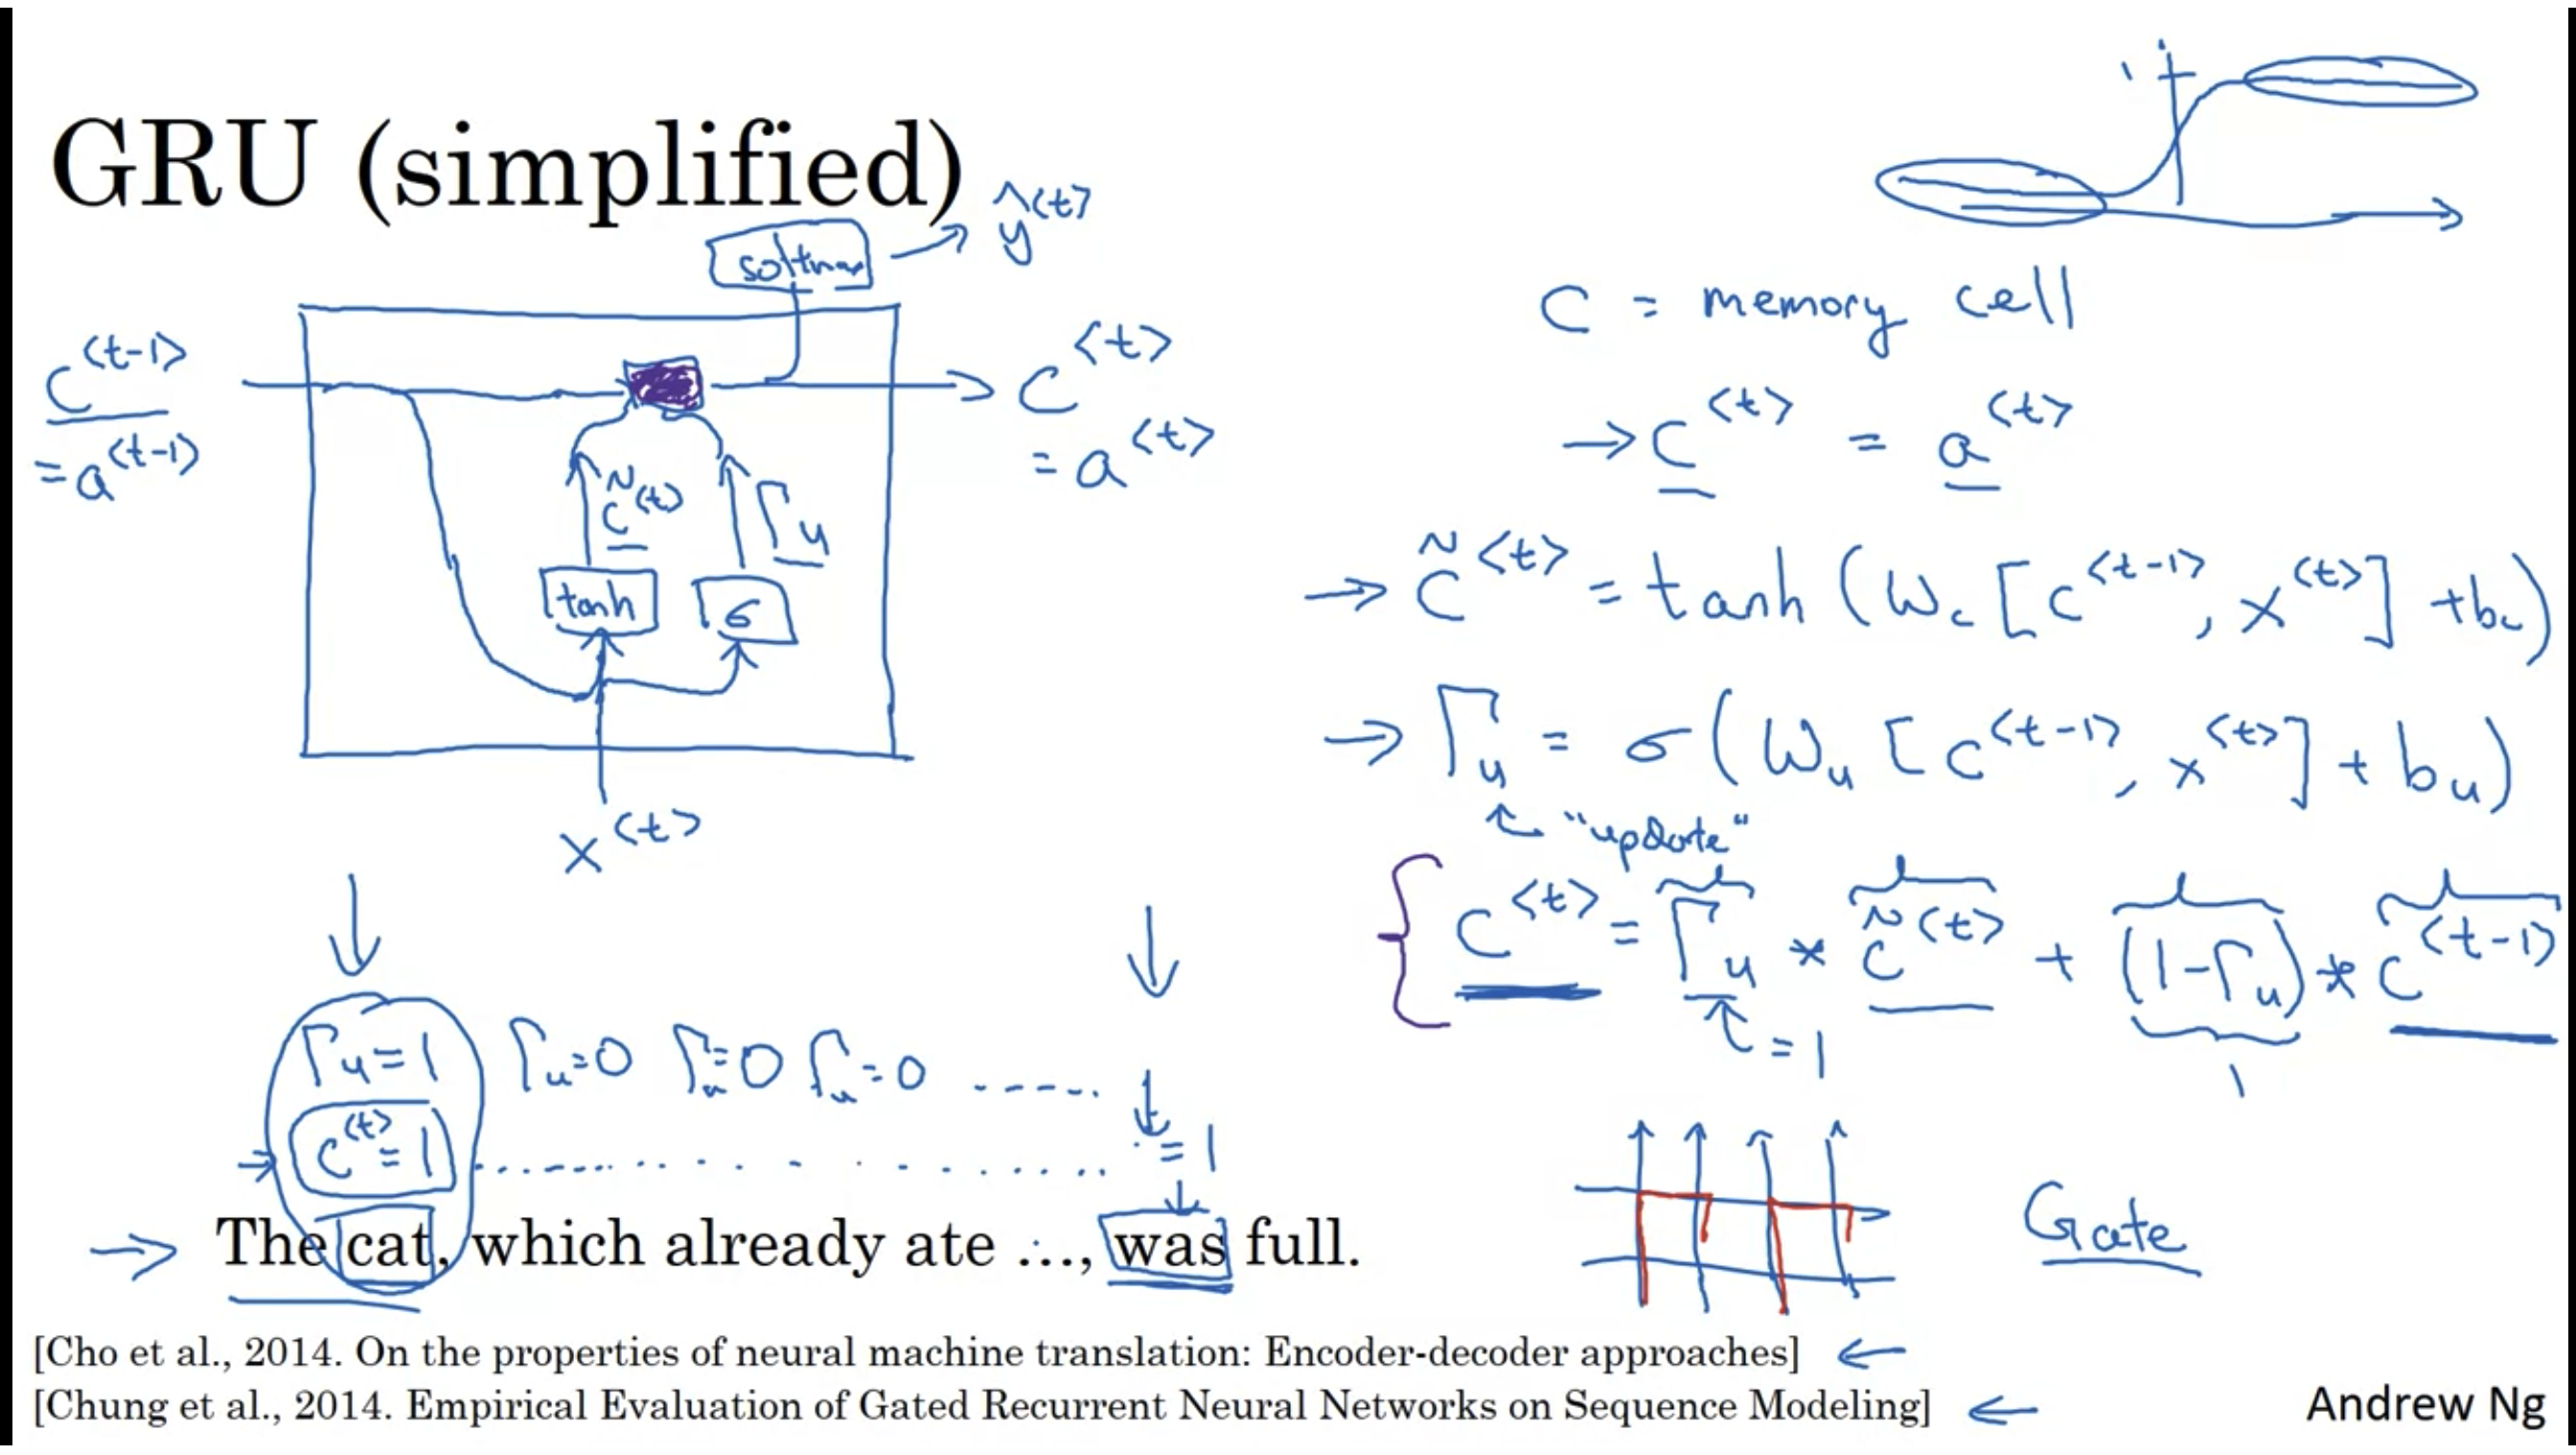 GRU (simplified)
softmax → ŷ^<t>
c^<t-1>
= a^<t-1>
c^<t>
= a^<t>
c̃^<t>
Γu
tanh
σ
x^<t>
1
c = memory cell
→ c^<t> = a^<t>
→ c̃^<t> = tanh (Wc [c^<t-1>, x^<t>] + bc)
→ Γu = σ (Wu [c^<t-1>, x^<t>] + bu)
"update"
c^<t> = Γu * c̃^<t> + (1-Γu) * c^<t-1>
= 1
1
Γu = 1 Γu = 0 Γu = 0 Γu = 0 -----
c^<t> = 1 ......... = 1
→ The cat, which already ate ..., was full.
Gate
[Cho et al., 2014. On the properties of neural machine translation: Encoder-decoder approaches] ←
[Chung et al., 2014. Empirical Evaluation of Gated Recurrent Neural Networks on Sequence Modeling] ←
Andrew Ng